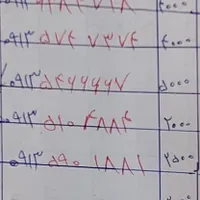 ۰۹۱۳ ۵۷۴ ۷۳۷۴ ۴۰۰۰
۰۹۱۳ ۵۴۶۶۶۶۷ ۵۰۰۰
۰۹۱۳ ۵۱۰ ۴۸۸۴ ۲۰۰۰
۰۹۱۳ ۵۹۰ ۱۸۸۱ ۲۵۰۰